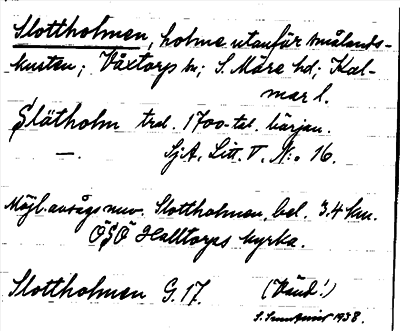 Slottholmen, holme utanför Smålands-
kusten; Växtorps by; S. Möre hd; Kal-
mar l.
Slåtholm trol. 1700-tal. början.
—. SjA. Litt. V. N:o 16.
Möjl. avsågs nuv. Slottholmen, bel. 3.4 km.
ÖSÖ Halltorps kyrka.
Slottholmen G. 17. (Vänd!)
1938.